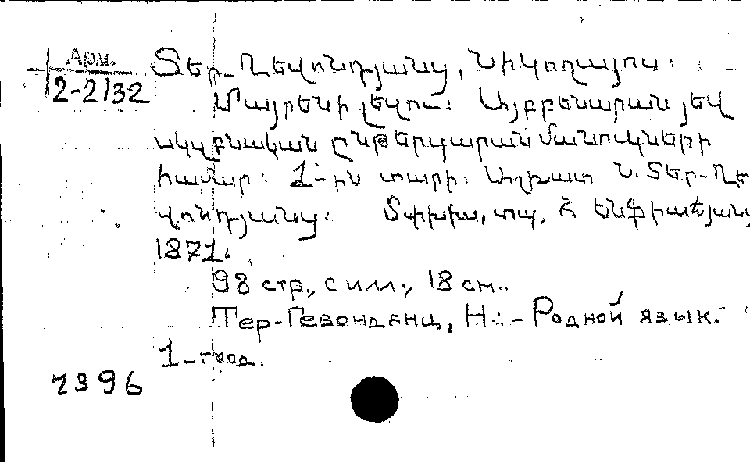 Арм.
2-2132
Տեր-Ղևոնդյանց, Նիկողայոս։
Մայրենի լեզու։ Այբբենարան յեվ
սկզբնական ընթերցարան մանուկների
համար։ 1-ին տարի։ Աշխատ Ն. Տեր-Ղե
վոնդյանց։ Թիֆլիս, տպ. Հ Ենֆիաճյանց
1871.
98 стр., с илл., 18 см.
Тер-Гевондянц, Н.:-Родной язык.
1-год.
7396